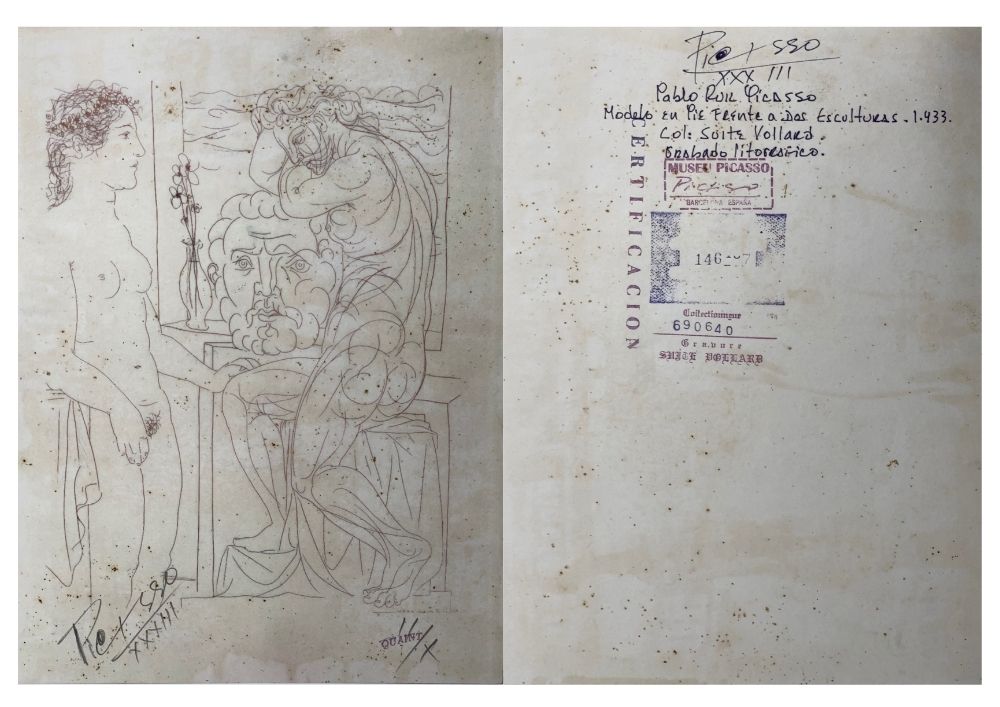 Picasso
XXXIII
QUAINT
II/X
Picasso
XXXIII
Pablo Ruiz Picasso
Modelo en Pie Frente a Dos Esculturas. 1.933.
Col: Suite Vollard.
Grabado litografico.
ERTIFICACION
MUSEU PICASSO
Picasso
BARCELONA ESPAÑA
146
Collectionngue
690640
Gravure
SUITE VOLLARD